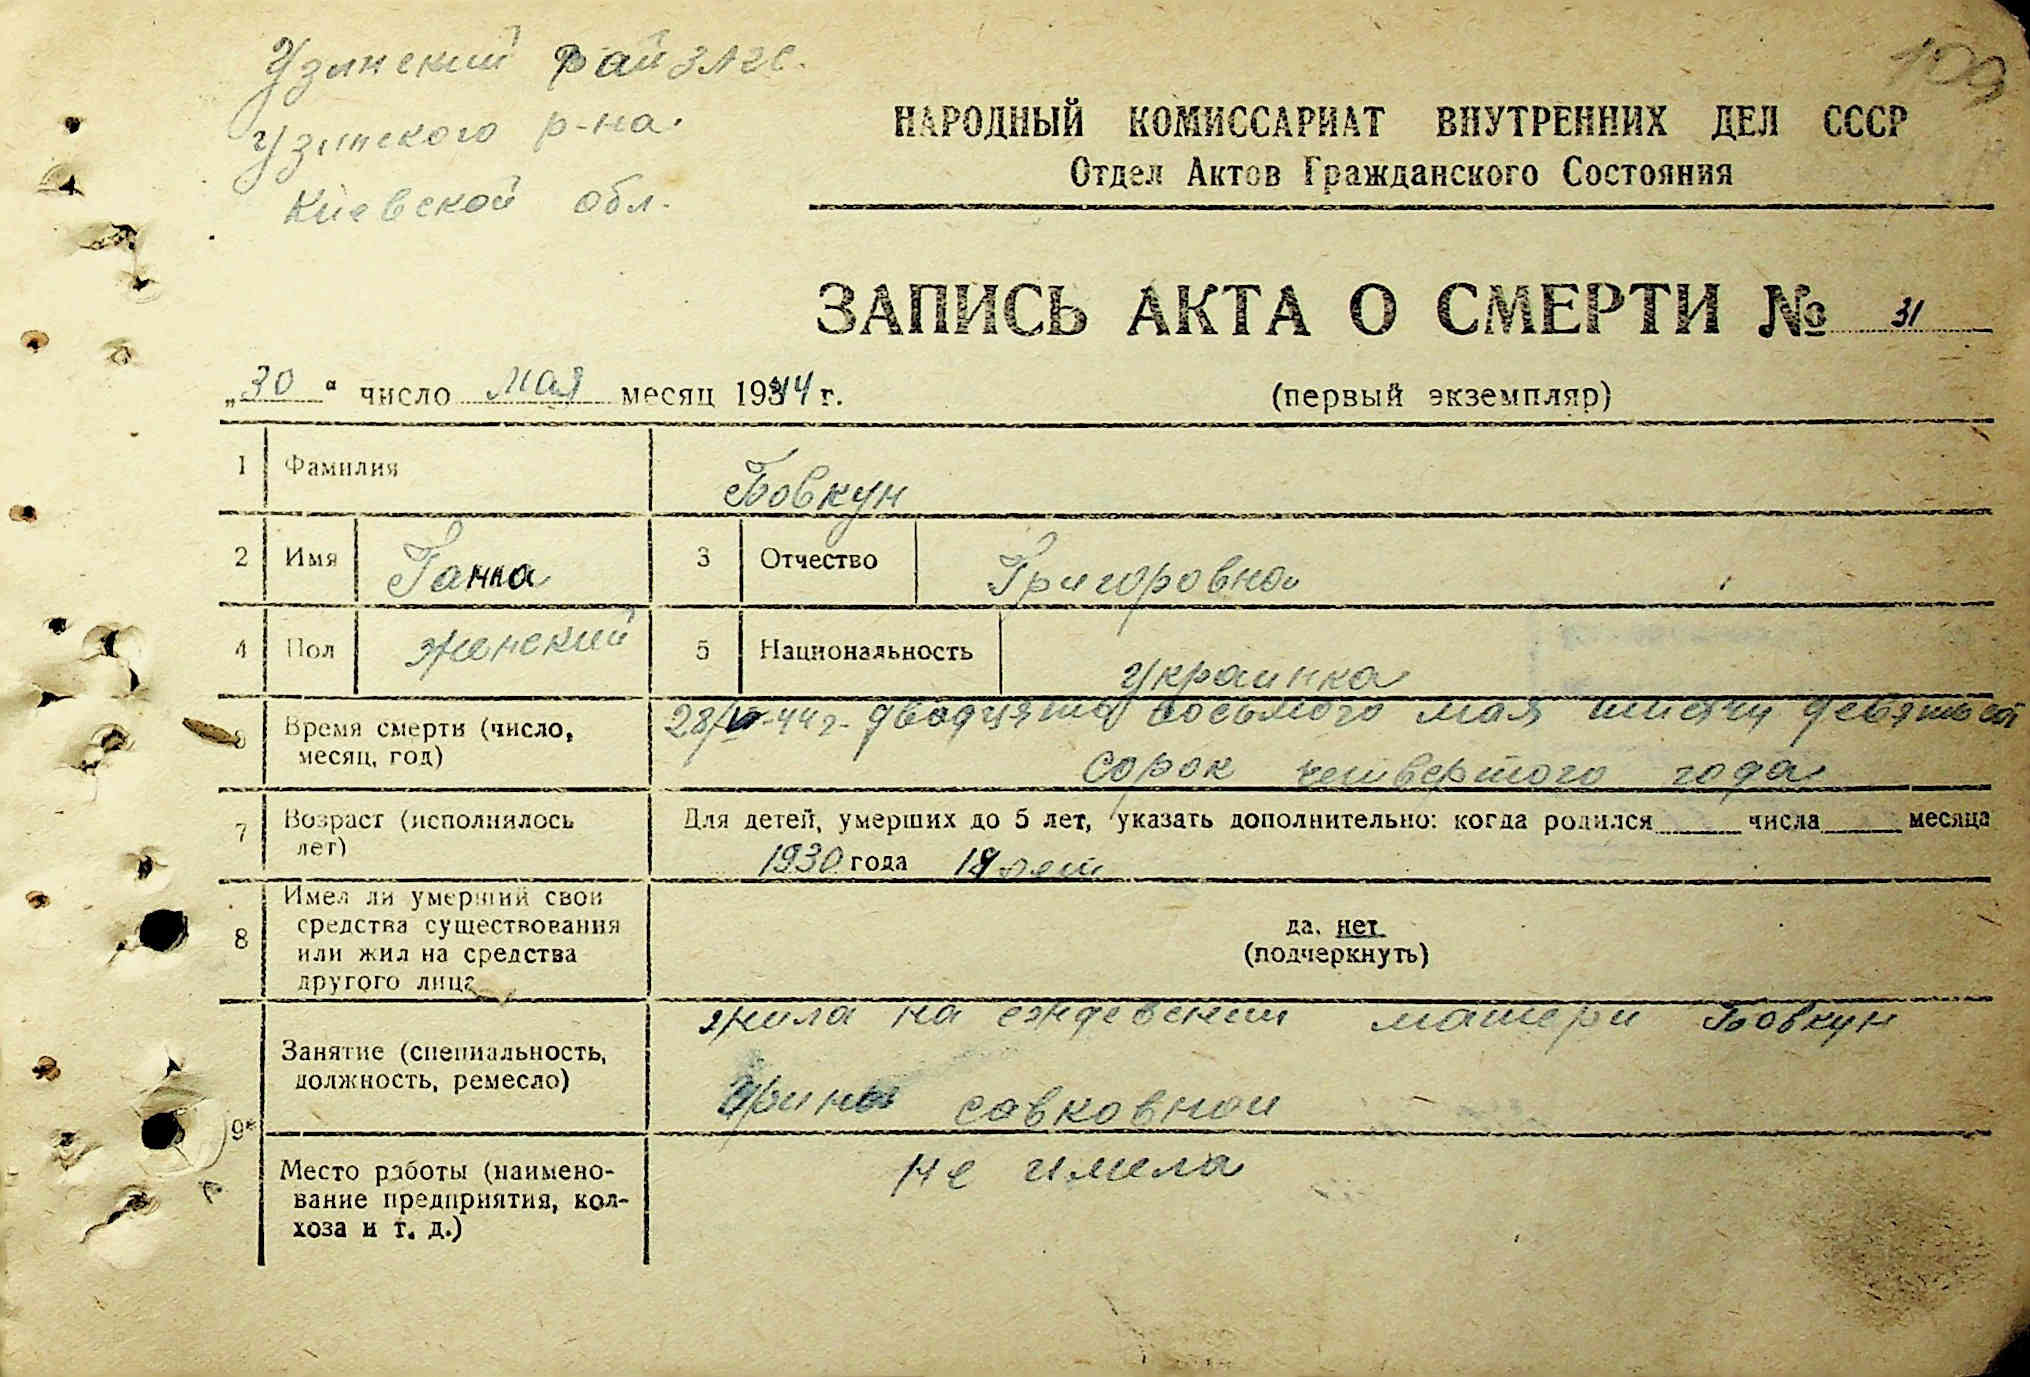 Узинский РайЗАГС.
109
Узинского р-на
Киевской обл.
НАРОДНЫЙ КОМИССАРИАТ ВНУТРЕННИХ ДЕЛ СССР
Отдел Актов Гражданского Состояния
ЗАПИСЬ АКТА О СМЕРТИ № 31
„30“ число мая месяц 1944 г.
(первый экземпляр)
1 Фамилия Бовкун
2 Имя Ганна 3 Отчество Григоровна
4 Пол женский 5 Национальность украинка
6 Время смерти (число, месяц, год) 28/V-44 г. двадцять восьмого мая тисячу девятьсот
сорок четвертого года
7 Возраст (исполнялось лет) Для детей, умерших до 5 лет, указать дополнительно: когда родился числа месяца
1930 года 14 лет
8 Имел ли умерший свои
средства существования
или жил на средства
другого лица
да, нет
(подчеркнуть)
9* Занятие (специальность,
должность, ремесло)
жила на еждевении матери Бовкун
Ирина Савковной
Место работы (наимено-
вание предприятия, кол-
хоза и т. д.)
не имела